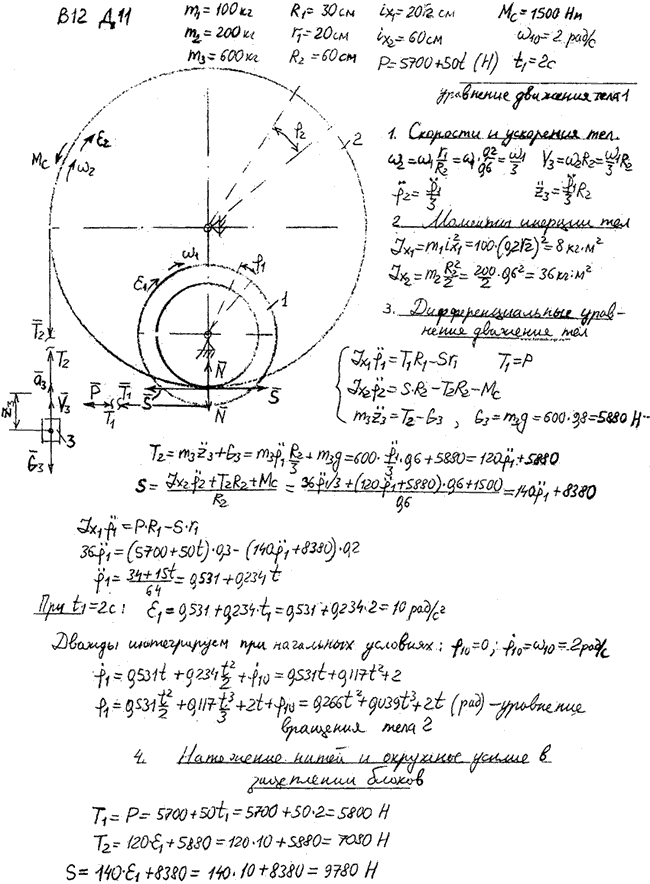 В12 Д.11
m₁=100кг R₁=30см iх₁=20√2 см Mс=1500 Нм
m₂=200кг r₁=20см iх₂=60см ω₁₀=2 рад/с
m₃=600кг R₂=60см P=5700+50t (Н) t₁=2с
уравнение движения тела 1
1. Скорости и ускорения тел.
ω₂=ω₁ r₁/R₂=ω₁·0,2/0,6=ω₁/3 V₃=ω₂R₂=ω₁/3 R₂
φ̈₂=φ̈₁/3 z̈₃=φ̈₁/3 R₂
2. Моменты инерции тел
Jх₁=m₁iх₁²=100·(0,2√2)²=8 кг·м²
Jх₂=m₂ R₂²/2=200/2·0,6²=36 кг·м²
3. Дифференциальные урав-
нения движение тел
Jх₁φ̈₁=T₁R₁-Sr₁ T₁=P
Jх₂φ̈₂=S·R₂-T₂R₂-Mс
m₃z̈₃=T₂-G₃, G₃=m₃g=600·9,8=5880 Н
Mс ε₂ ω₂ φ₂ 2
ω₁ φ₁ ε₁ 1
T̄₂ T̄₂ ā₃ V̄₃ z₃ 3 Ḡ₃
P̄ T̄₁ T̄₁ S̄ N̄ N̄ S̄
T₂=m₃z̈₃+G₃=m₃φ̈₁ R₂/3+m₃g=600·φ̈₁/3·0,6+5880=120φ̈₁+5880
S=(Jх₂φ̈₂+T₂R₂+Mс)/R₂=(36φ̈₁/3+(120φ̈₁+5880)·0,6+1500)/0,6=140φ̈₁+8380
Jх₁φ̈₁=P·R₁-S·r₁
36φ̈₁=(5700+50t)·0,3-(140φ̈₁+8380)·0,2
φ̈₁=(34+15t)/64=0,531+0,234t
При t₁=2с: ε₁=0,531+0,234·t₁=0,531+0,234·2=10 рад/с²
Дважды интегрируем при начальных условиях: φ₁₀=0; φ̇₁₀=ω₁₀=2рад/с
φ̇₁=0,531t+0,234t²/2+φ̇₁₀=0,531t+0,117t²+2
φ₁=0,531t²/2+0,117t³/3+2t+φ₁₀=0,266t²+0,039t³+2t (рад)-уравнение
вращения тела 2
4. Натяжение нитей и окружное усилие в
зацеплении блоков
T₁=P=5700+50t₁=5700+50·2=5800 Н
T₂=120·ε₁+5880=120·10+5880=7080 Н
S=140·ε₁+8380=140·10+8380=9780 Н